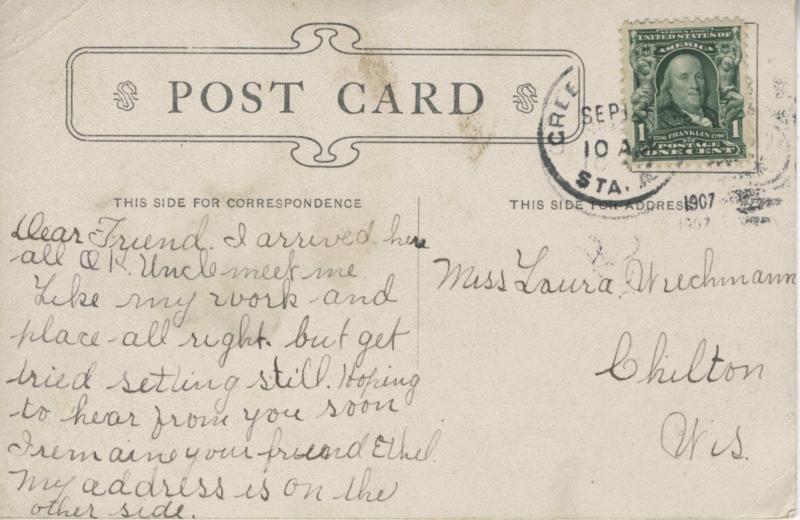 POST CARD
SERIES 1902
UNITED STATES OF
AMERICA
1 1706 FRANKLIN 1790 1
POSTAGE
ONE CENT
GREE
SEP
10 A
STA.
1907
THIS SIDE FOR CORRESPONDENCE
Dear Friend. I arrived here
all O K. Uncle meet me
Like my work and
place all right. but get
tried setting still. Hoping
to hear from you soon
I remaine your friend Ethel.
My address is on the
other side.
THIS SIDE FOR ADDRESS
Miss Laura Wiechmann
Chilton
Wis.